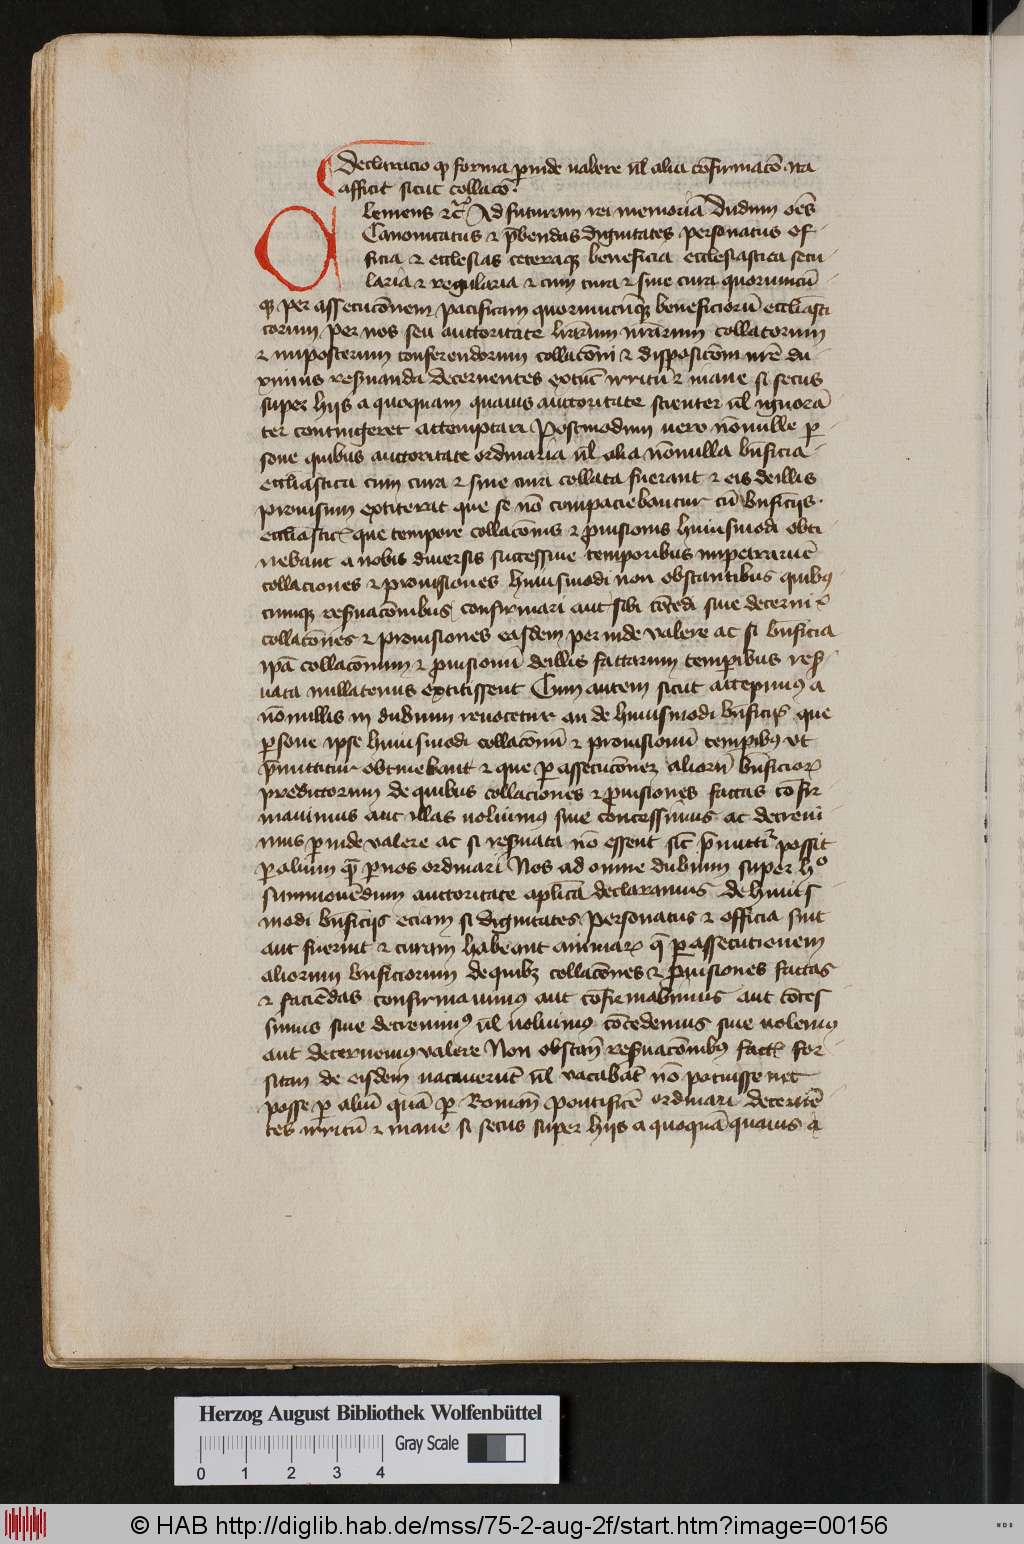 Declaracio qꝫ forma ꝑinde valere ul̄ alia cōfirmacō ita
afficit sicut collacō
Clemens ⁊c̄ Ad futuram rei memoriā Dudum oēs
Canonicatus ⁊ p̄bendas dignitates personatus of-
ficia ⁊ ecclesias ceteraqꝫ beneficia ecclesiastica secu-
laria ⁊ regularia ⁊ cum cura ⁊ sine cura quorumcū-
qꝫ per assecucōnem pacificam quorumcūqꝫ beneficiorū ecclīasti
corum per nos seu auctoritate lrārum nrārum collatorum
⁊ imposterum conferendorum collacōni ⁊ disposicōni nrē du-
ximus reẜuanda decernentes extūc irritū ⁊ inane si secus
super hijs a quoquam quauis auctoritate scienter ul̄ ignorā-
ter contingeret attemptari Postmodum uero nōnulle ꝑ-
sone quibus auctoritate ordinaria ul̄ alia nōnulla bn̄ficia
ecclīastica cum cura ⁊ sine cura collata fuerant ⁊ eis deillis
prouisum extiterat que se nō compaciebantur cū bn̄ficijs
ecclīastic̄ que tempore collacōnis ⁊ ꝓuisionis huiusmodi obti
nebant a nobis diuersis successiue temporibus impetrarūt
collaciones ⁊ prouisiones huiusmodi non obstantibus quibꝰ-
cumqꝫ reẜuacōnibus confirmari aut sibi cōcedi siue decerni
collacōnes ⁊ prouisiones easdem per inde valere ac si bn̄ficia
ip̄a collacōnum ⁊ ꝓuisionū deillis factarum temporibus reẜ-
uata nullatenus extitissent Cum autem sicut accepimꝰ a
nōnullis in dubium reuocetur an de huiusmodi bn̄ficijs que
ꝑsone ipse huiusmodi collacōnū ⁊ prouisionū temporibꝰ vt
p̄mittitur obtinebant ⁊ que ꝑ assecucōnem aliorū bn̄ficioꝝ
predictorum de quibus collaciones ⁊ ꝓuisiones factas cōfir-
mauimus aut illas uoluimꝰ siue concessimus ac decreui
mus ꝑinde valere ac si reẜuata nō essent sic̄ p̄mittit̄ possit
ꝑ alium qᷓ ꝑ nos ordinari Nos ad omne dubium super hᵒ
summouēdum auctoritate aplīca declaramus de huius
modi bn̄ficijs eciam si dignitates personatus ⁊ officia sint
aut fuerint ⁊ curam habeant animaꝝ qᷓ ꝑ assecutionem
aliorum bn̄ficiorum dequibꝫ collacōnes ⁊ ꝓuisiones factas
⁊ faciēdas confirmauimꝰ aut cōfirmabimus aut cōces
simus siue decreuimꝰ ul̄ uoluimꝰ cōcedemus siue uolemꝰ
aut decernemꝰ valere Non obstan̄ reẜuacōnibꝰ fact̄ for
sitan de eisdem uacauerūt ul̄ vacabāt nō potuisse nec
posse ꝑ aliū quā ꝑ Roman̄ pontificē ordinari decernē
tes irritū ⁊ inane si secus super hijs a quoquā quauis a
Herzog August Bibliothek Wolfenbüttel
Gray Scale
0 1 2 3 4
© HAB http://diglib.hab.de/mss/75-2-aug-2f/start.htm?image=00156